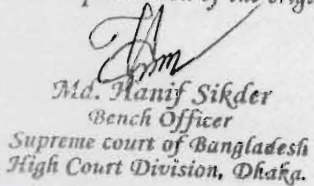 of the orig
Md. Hanif Sikder
Bench Officer
Supreme court of Bangladesh
High Court Division, Dhaka.